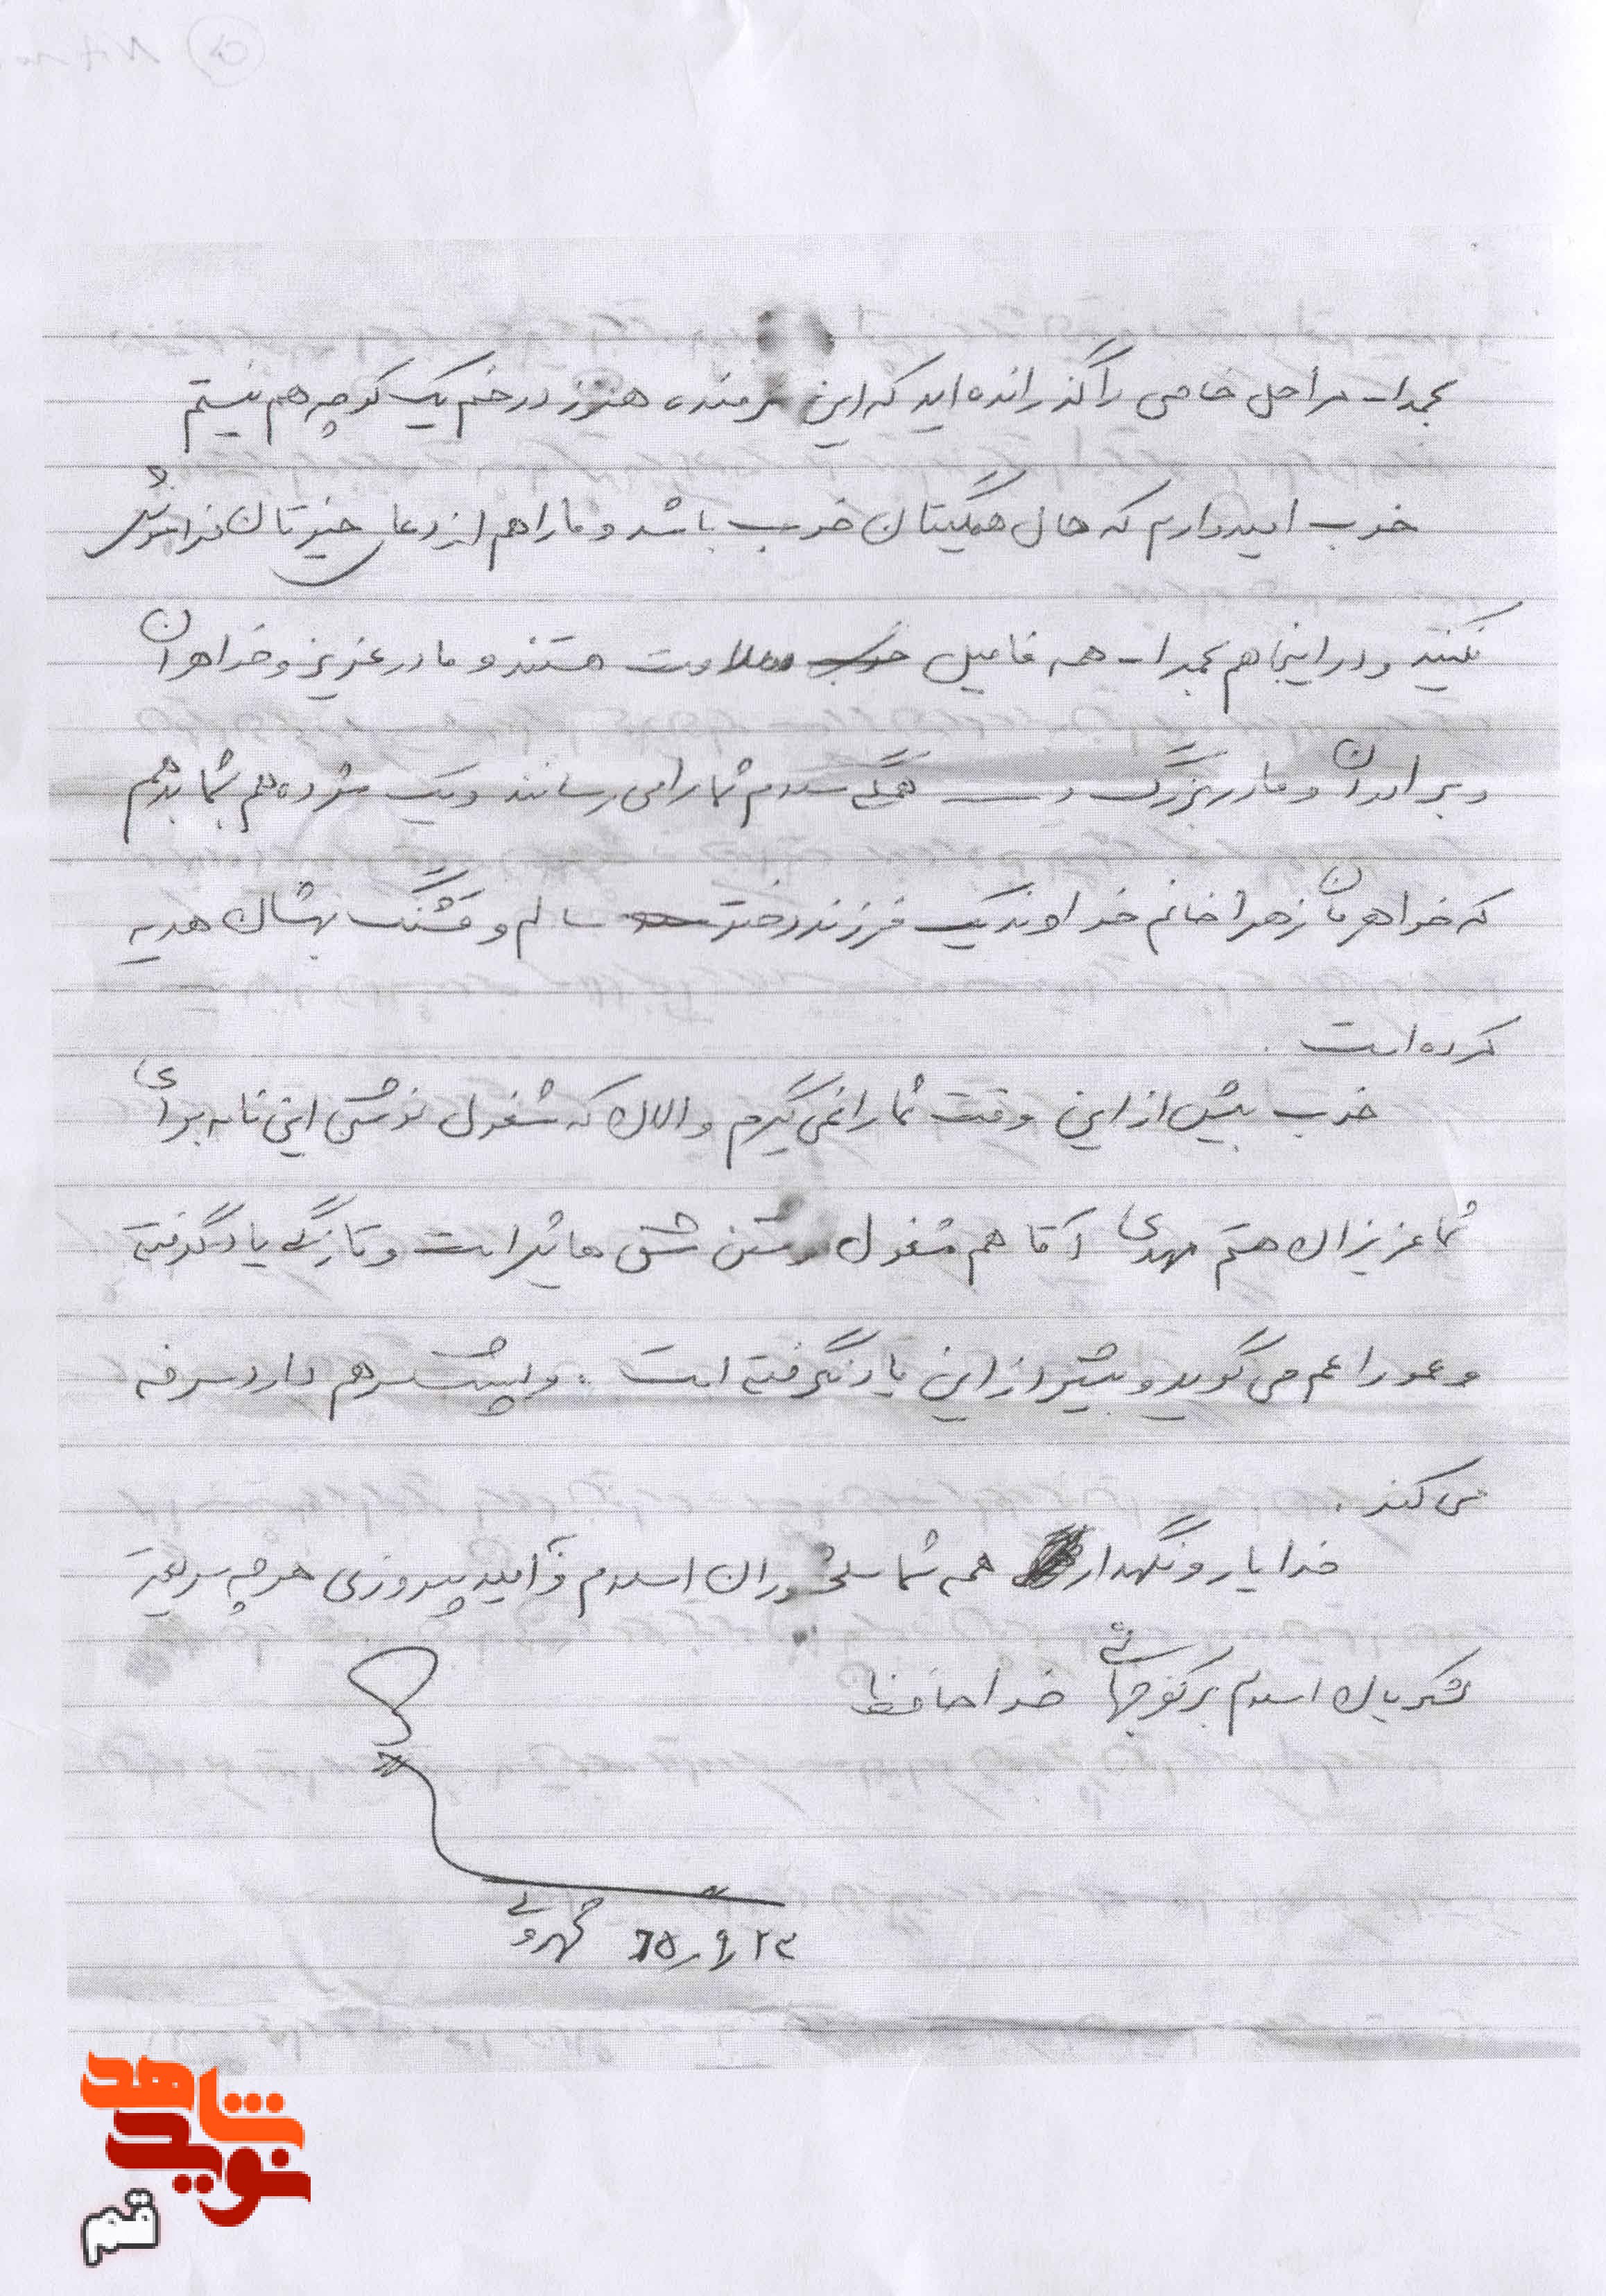 بحمدا... مراحل خاصی را گذرانده اید که این شرمنده هنوز در خم یک کوچه هم نیستم
خوب امیدوارم که حال همگیتان خوب باشد و ما را هم از دعای خیرتان فراموش
نکنید و در اینجا هم بحمدا... همه فامیل سلامت هستند و مادر عزیز و خواهران
و برادران و مادربزرگ و ... همگی سلام شما را می رسانند و یک مژده هم بشما بدهم
که خواهرمان زهرا خانم خداوند یک فرزند دختر سالم و قشنگ بهشان هدیه
کرده است .
خوب بیش از این وقت شما را نمی گیرم و الان که مشغول نوشتن این نامه برای
شما عزیزان هستم مهدی آقا هم مشغول نوشتن مشق هایش است و تازگی یاد گرفته
و عمو را عم می گوید و بیشتر از این یاد نگرفته است . و پشت سر هم دارد سرفه
می کند .
خدا یار و نگهدار همه شما سلحشوران اسلام و به امید پیروزی هر چه سریعتر
لشکریان اسلام بر کفر جهانی خداحافظ
۶۵/۹/۲۳
شاهد
نوید
قم